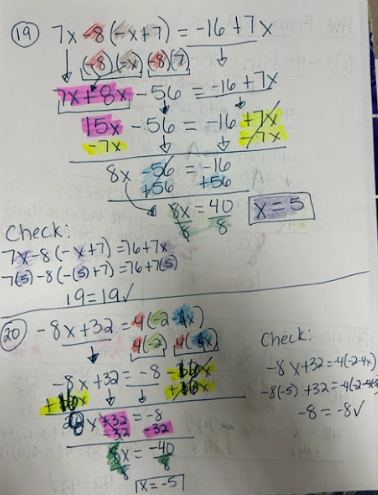 19 7x -8(-x+7) = -16 + 7x
(-8)(-x) (-8)(7)
7x + 8x - 56 = -16 + 7x
15x - 56 = -16 + 7x
-7x -7x
8x -56 = -16
+56 +56
8x = 40
8 8
x = 5
Check:
7x - 8(-x+7) = 16 + 7x
7(5) - 8(-(5)+7) = 16 + 7(5)
19 = 19 ✓
20 -8x + 32 = 4(-2 - 4x)
4(-2) 4(-4x)
-8x + 32 = -8 - 16x
+16x +16x
8x + 32 = -8
-32 -32
8x = -40
8 8
x = -5
Check:
-8x + 32 = 4(-2-4x)
-8(-5) + 32 =
-8 = -8 ✓